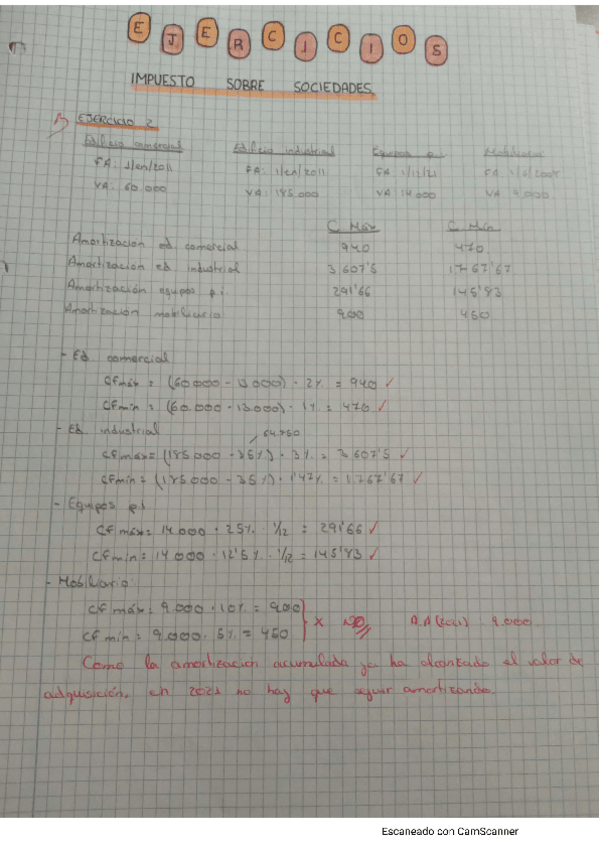 EJERCICIOS
IMPUESTO SOBRE SOCIEDADES
EJERCICIO 2
Edificio comercial Edificio industrial Equipos p.i Mobiliario
FA: 1/en/2011 FA: 1/en/2011 FA: 1/12/21 FA
VA: 60.000 VA: 185.000 VA 14.000 VA 9.000
C Máx C Mín
Amortización ed comercial 940 470
Amortización ed industrial 3.607'5 1767'67
Amortización equipos p.i. 291'66 145'83
Amortización mobiliario 900 450
- Ed comercial
CFmáx = (60.000 - 13.000) · 2% = 940 ✓
CFmin = (60.000 - 13.000) · 1% = 470 ✓
- Ed industrial
64.750
CFmáx = (185.000 - 35%) · 3% = 3.607'5 ✓
CFmin = (185.000 - 35%) · 1'47% = 1.767'67 ✓
- Equipos p.i
CF máx = 14.000 · 25% · 1/12 = 291'66 ✓
CF min = 14.000 · 12'5% · 1/12 = 145'83 ✓
- Mobiliario
CF máx = 9.000 · 10% = 900 x NO A.A : 9.000
CF min = 9.000 · 5% = 450
Como la amortización acumulada ya ha alcanzado el valor de
adquisición, en 2021 no hay que seguir amortizando.
Escaneado con CamScanner